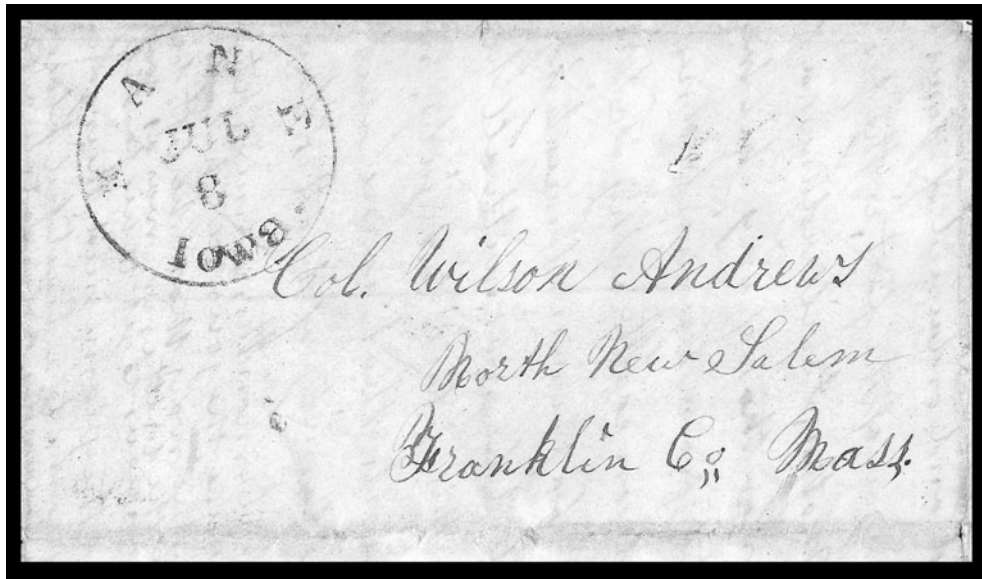 KANE
JUL
8
Iowa.
Col. Wilson Andrews
North New Salem
Franklin Co, Mass.